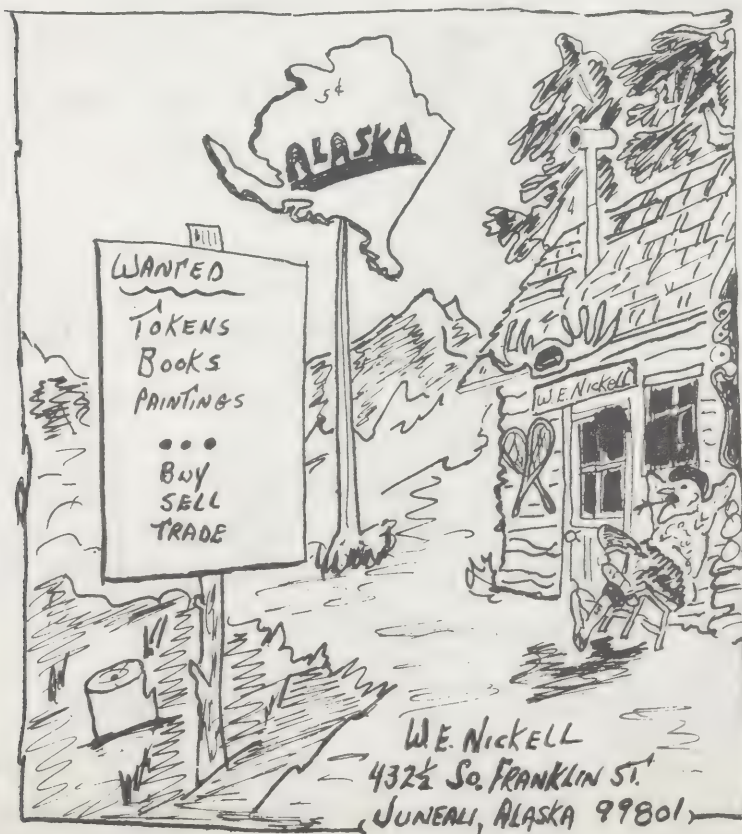 5¢
ALASKA
WANTED
TOKENS
BOOKS
PAINTINGS
•••
BUY
SELL
TRADE
W.E. Nickell
W.E. NICKELL
432½ SO. FRANKLIN ST.
JUNEAU, ALASKA 99801